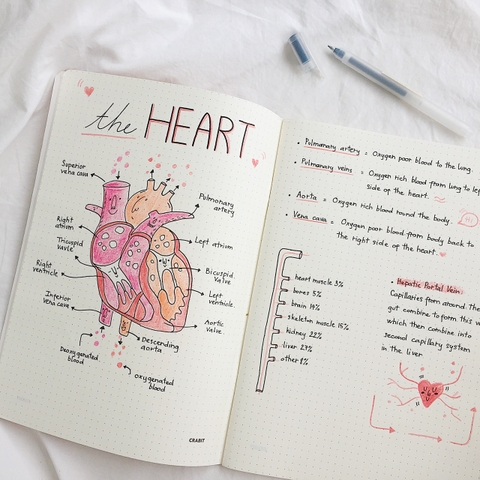 the HEART
Superior
vena cava
Right
atrium
Tricuspid
valve
Right
ventricle
Inferior
vena cava
Deoxygenated
blood
Pulmonary
artery
Left atrium
Bicuspid
Valve
Left
ventricle
Aortic
Valve
Descending
aorta
oxygenated
blood
CRABIT
• Pulmonary artery = Oxygen poor blood to the lung.
• Pulmonary veins = Oxygen rich blood from lung to lef
side of the heart.
• Aorta = Oxygen rich blood round the body.
Hi
• Vena cava = Oxygen poor blood from body back to
the right side of the heart.
heart muscle 3%
bones 5%
brain 14%
skeleton muscle 15%
kidney 22%
liver 27%
other 8%
• Hepatic Portal Vein:
Capillaries from around the
gut combine to form this v
which then combine into
second capillary system
in the liver